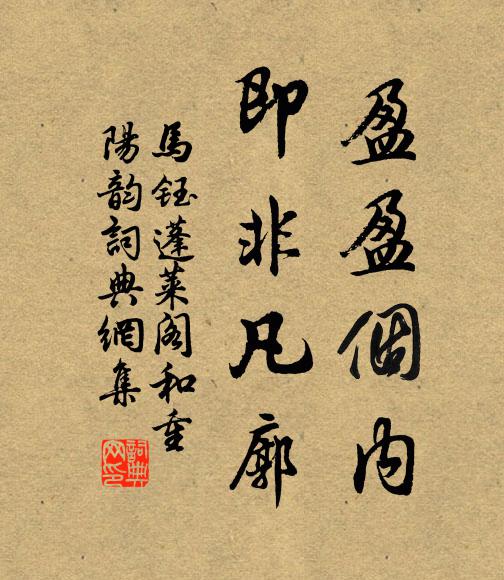 盈盈個內
即非凡廓
馬鈺蓬萊閣和重
陽韵詞典網集
詞典
网印